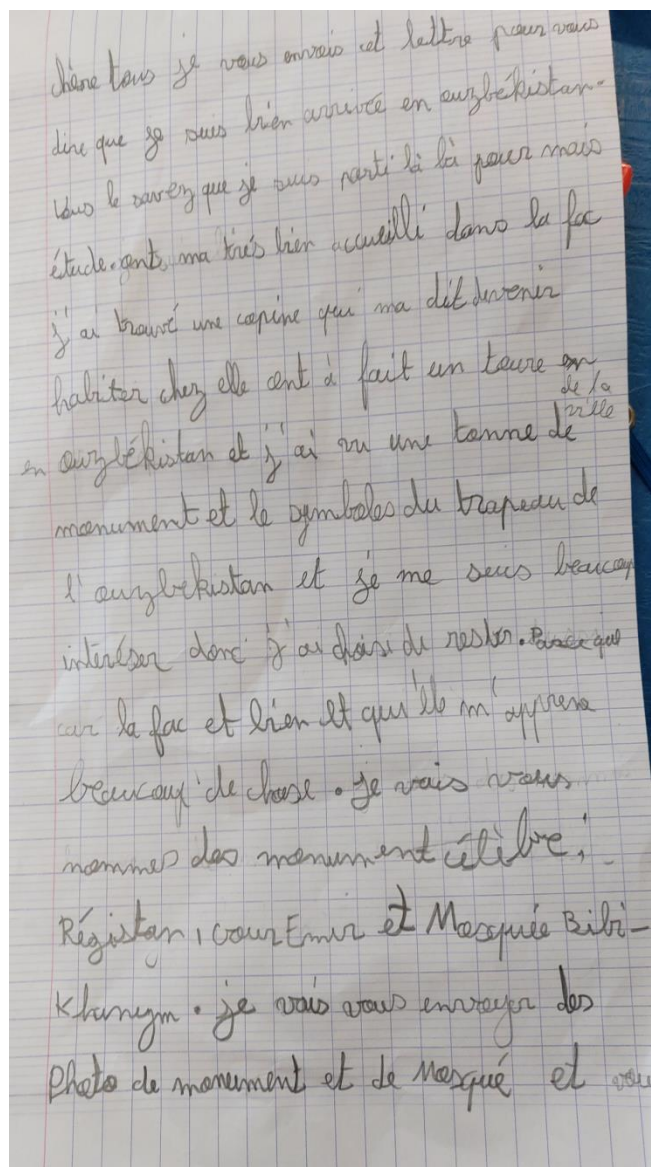 chère tous je vous envois cet lettre pour vous
dire que je suis bien arrivée en ouzbékistan.
Vous le savez que je suis parti là là pour mais
étude. onts ma très bien accueilli dans la fac
j'ai trouvé une copine qui ma dit devenir
habiter chez elle ont à fait un toure en
de la ville
en ouzbékistan et j'ai vu une tonne de
monument et le symboles du trapeau de
l'ouzbekistan et je me suis beaucoup
intéréser donc j'ai choisi de rester. Parce que
car la fac et bien et qu'ils m'apprens
beaucoup de chose. je vais vous
nommes des monument célèbre,
Régistan, Gour Emir et Mosquée Bibi-
Khanym. je vais vous envoyer des
Photo de monument et de Mosqué et vou